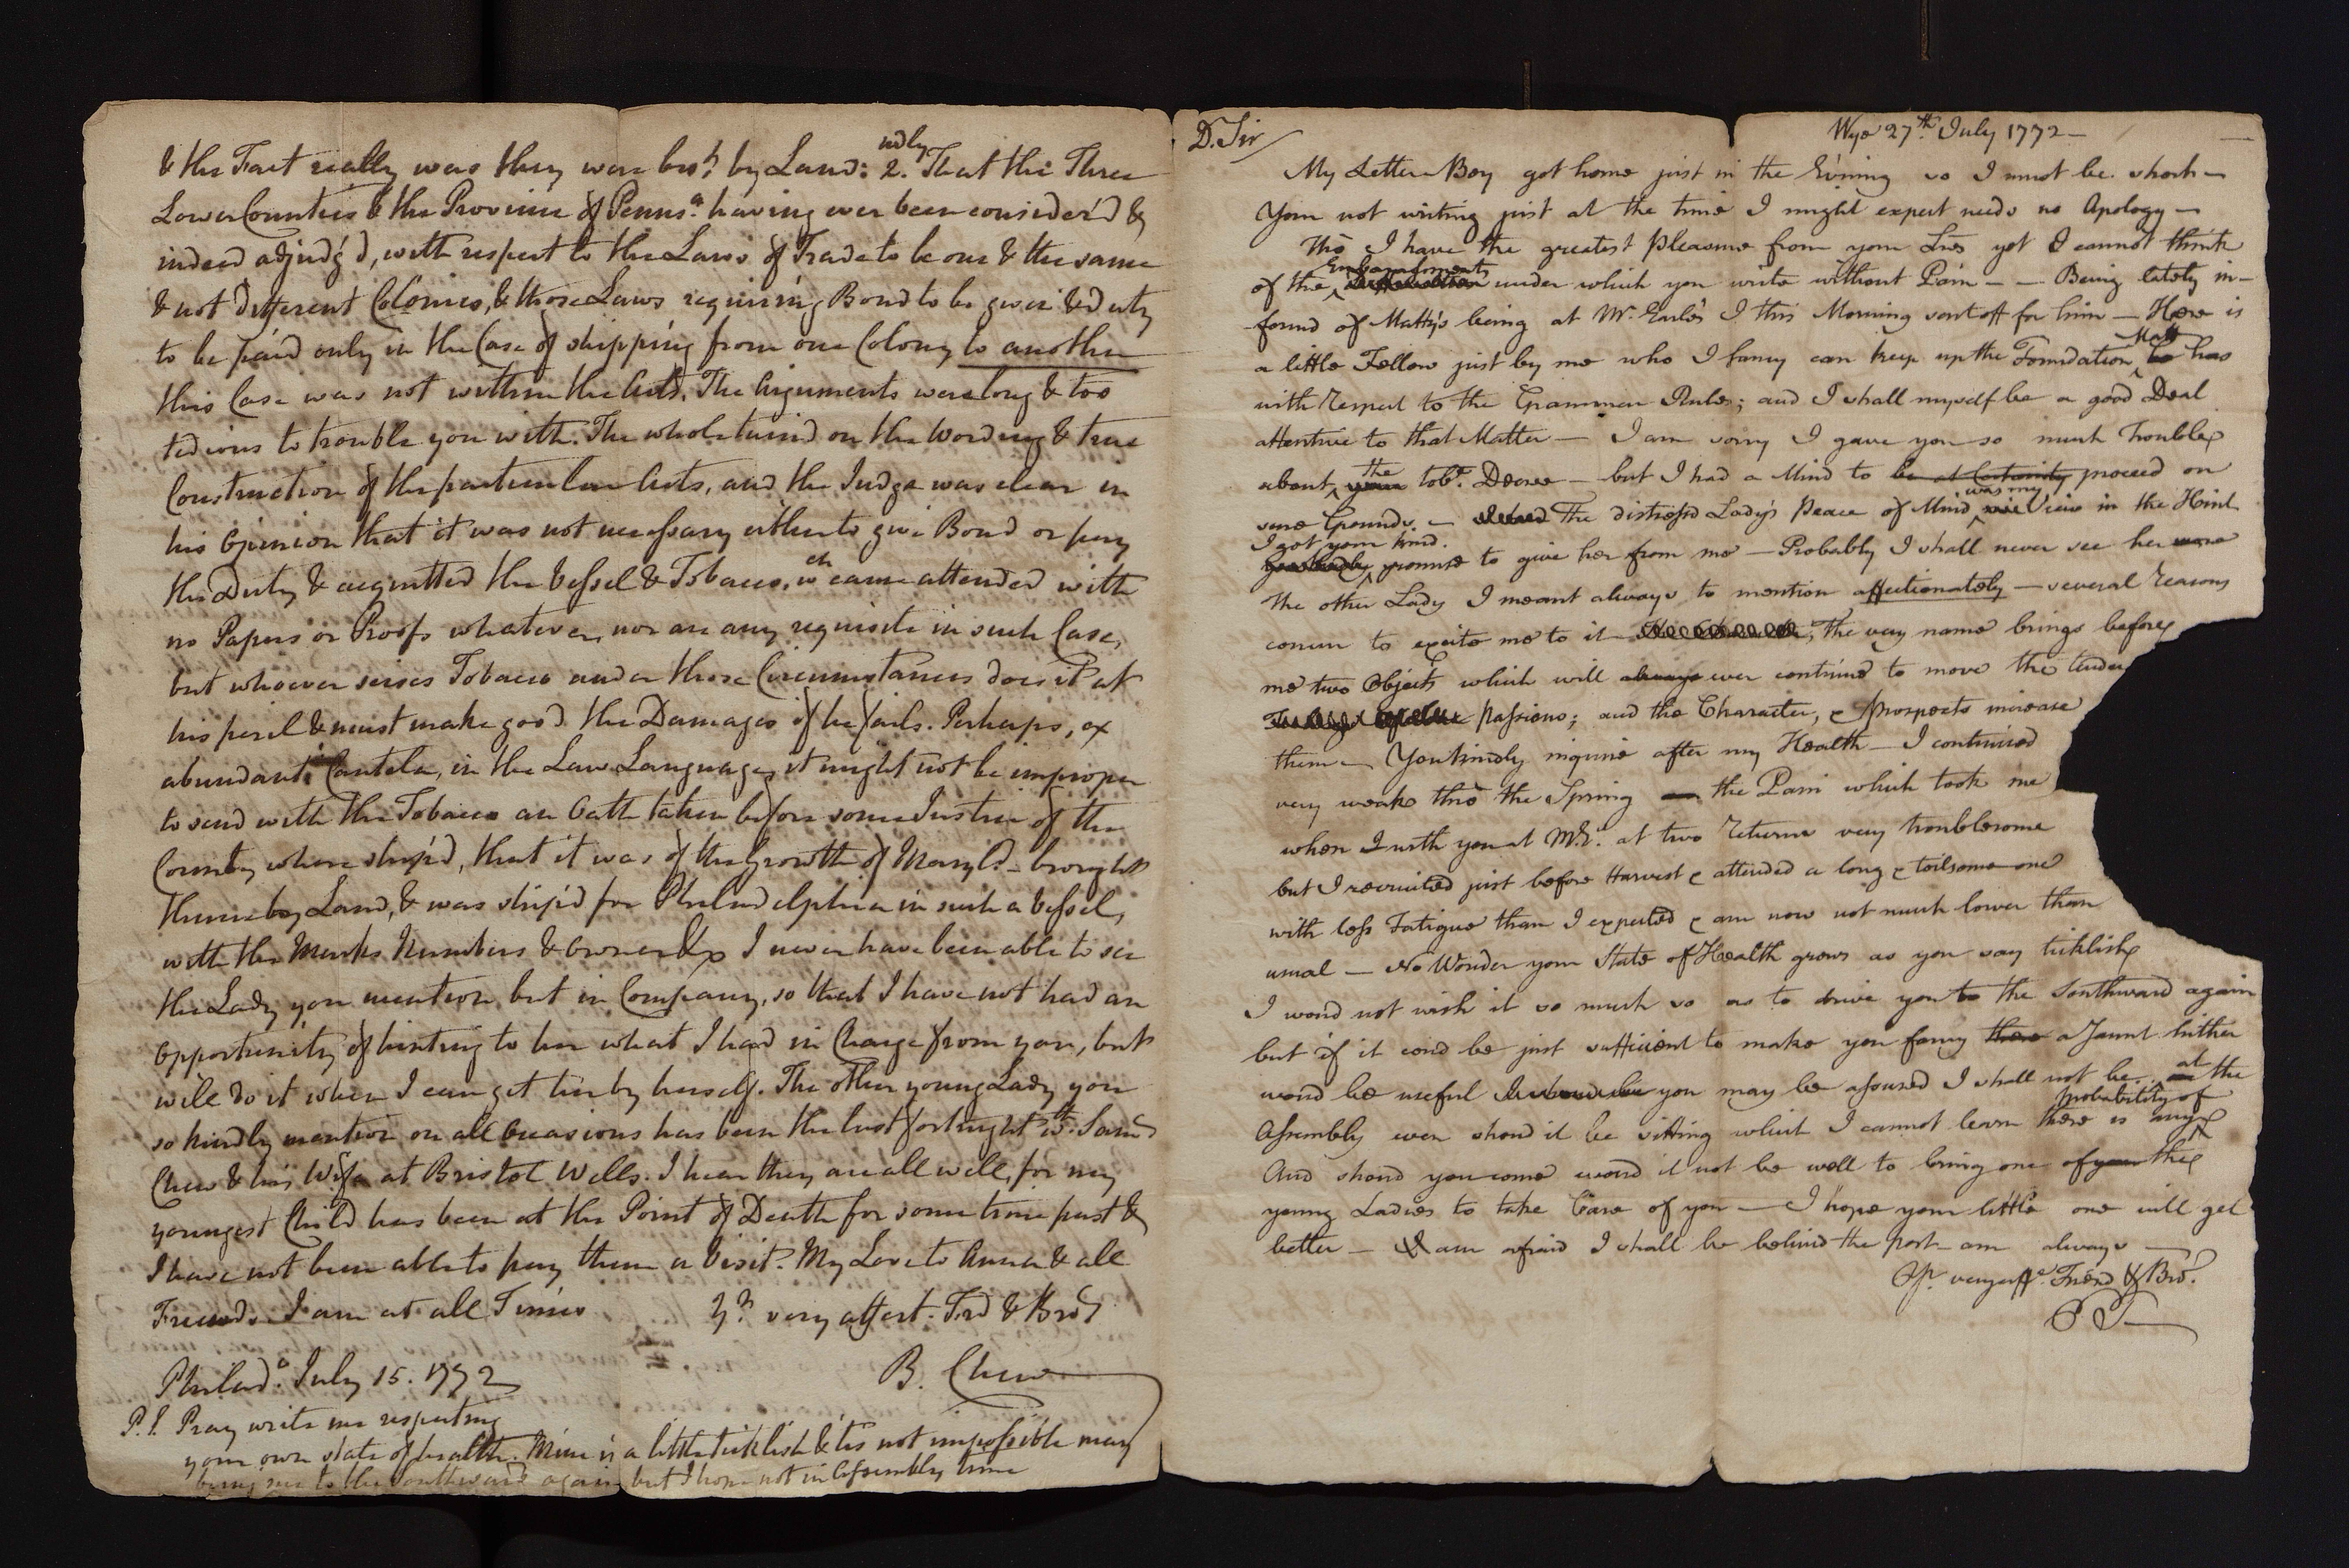 & the Fact really was they were bro.t by Land: 2.ndly That the Three
Lower Counties & the Province of Penns.a having ever been consider'd &
indeed adjudg'd, with respect to the Laws of Trade to be one & the same
& not different Colonies, & those Laws requiring Bond to be given & duty
to be paid only in the Case of shipping from one Colony to another
this Case was not within the Acts. The Arguments were long & too
tedious to trouble you with. The whole turn'd on the Wording & true
Construction of the particular Acts, and the Judge was clear in
his Opinion that it was not necessary either to give Bond or pay
the Duty & acquitted the Vessel & Tobacco, w.ch came attended with
no Papers or Proofs whatever, nor are any requisite in such Case,
but whoever seises Tobacco under those Circumstances does it at
his peril & must make good the Damages if he fails. Perhaps, ex
abundanti Cautela, in the Law Language, it might not be improper
to send with the Tobacco an Oath taken before some Justice of the
County where ship'd, that it was of the Growth of Maryl.d - brought
thence by Land, & was ship'd for Philadelphia in such a Vessel,
with the Marks Numbers & Owner &c I never have been able to see
the Lady you mention, but in Company, so that I have not had an
Opportunity of hinting to her what I had in Charge from you, but
will do it when I can get her by herself. The other young Lady you
so kindly mention on all Occasions has been the last fortnight w.th Sam.l
Chew & his Wife at Bristol Wells. I hear they are all well, for my
youngest Child has been at the Point of Death for some time past &
I have not been able to pay them a Visit. My Love to Anna & all
Friends. I am at all Times
Y.r very affect. Frd & Bro.r
B. Chew
Philad.a July 15. 1772
P.S. Pray write me respecting
your own state of health. Mine is a little ticklish & 'tis not impossible may
bring me to the Southward again but I hope not in Assembly time
Wye 27.th July 1772 -
D. Sir
My Letter Boy got home just in the Evining so I must be short -
Your not writing just at the time I might expect needs no Apology -
Tho I have the greatest Pleasure from your Lrēs yet I cannot think
of the Embarrasments under which you write without Pain - - Being lately in-
formd of Matty's being at Mr. Earle's I this Morning sent off for him - Here is
a little Fellow just by me who I fancy can keep up the Foundation Matt has
with Respect to the Grammer Rules; and I shall myself be a good Deal
attentive to that Matter - I am sorry I gave you so much Trouble
about the your tob.o Decree - but I had a Mind to be at Certainty proceed on
sure Grounds. - The distress'd Lady's Peace of Mind was my View in the Hint
I got your kind promise to give her from me - Probably I shall never see her more
The other Lady I meant always to mention affectionately - several Reasons
concur to excite me to it - the very name brings before
me two Objects which will always ever continue to move the tender
Passions; and the Character, & Prospects increase
them - You kindly inquire after my Health - I continued
very weak thro the Spring the Pain which took me
when I with you at M.E. at two Returns very troublesome
but I recruited just before Harvest & attended a long & toilsome one
with less Fatigue than I expected & am now not much lower than
usual - No Wonder your State of Health grows as you say ticklish
I woud not wish it so much so as to drive you to the Southward again
but if it coud be just sufficient to make you fancy there a Jaunt hither
woud be useful you may be assured I shall not be at the
Assembly even shoud it be sitting which I cannot learn there is any probability of
And shoud you come woud it not be well to bring one of your the
young Ladies to take Care of you - I hope your little one will get
better - I am afraid I shall be behind the post - am always -
Yr. very aff.e Friend & Bro.r